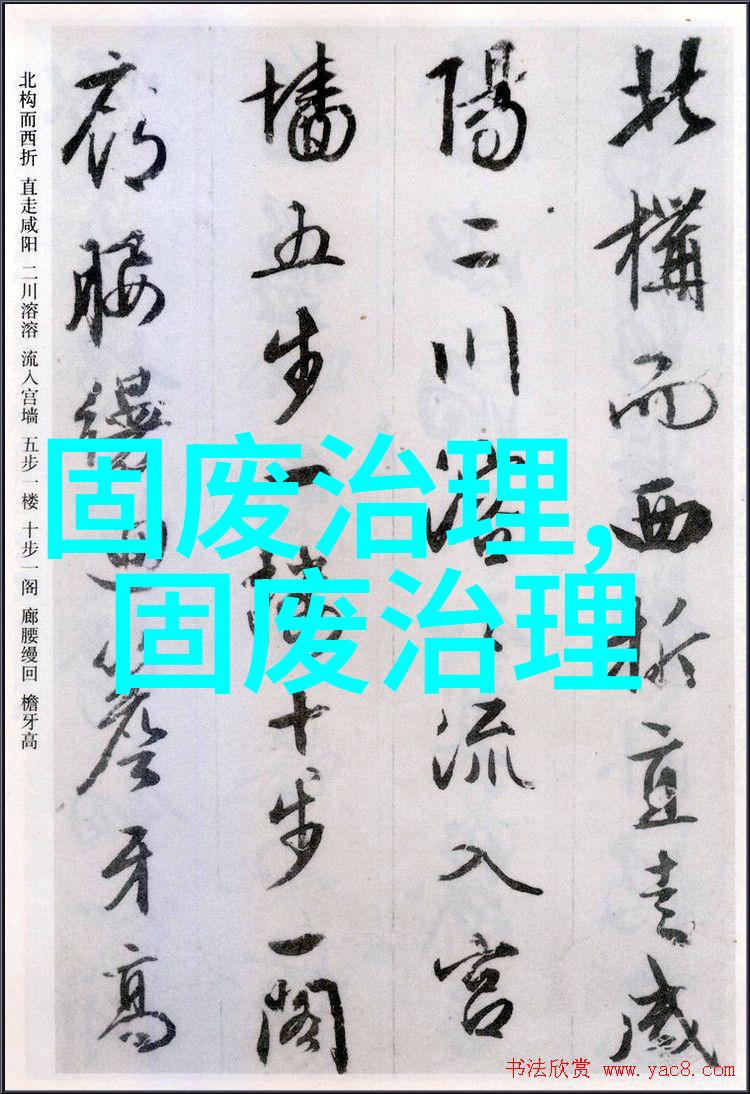 北構而西折直走咸
陽二川溶〻流入宮
墻五步一樓十步一閣
廊腰縵迴簷牙高
北构而西折 直走咸阳 二川溶溶 流入宫墙 五步一楼 十步一阁 廊腰缦回 檐牙高
固废治理,
固废治理
书法欣赏 www.yac8.com